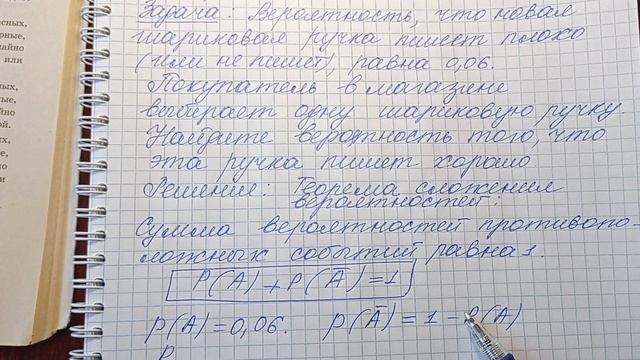 асных,
рные,
чайно
или
ных,
тые,
йно
ой.
их,
ле,
но
и
Задача: Вероятность, что новая
шариковая ручка пишет плохо
(или не пишет), равна 0,06.
Покупатель в магазине
выбирает одну шариковую ручку.
Найдите вероятность того, что
эта ручка пишет хорошо
Решение: Теорема сложения
вероятностей:
Сумма вероятностей противопо-
ложных событий равна 1.
P(A)+P(Ā)=1
P(A)=0,06. P(Ā)=1-P(A)
P